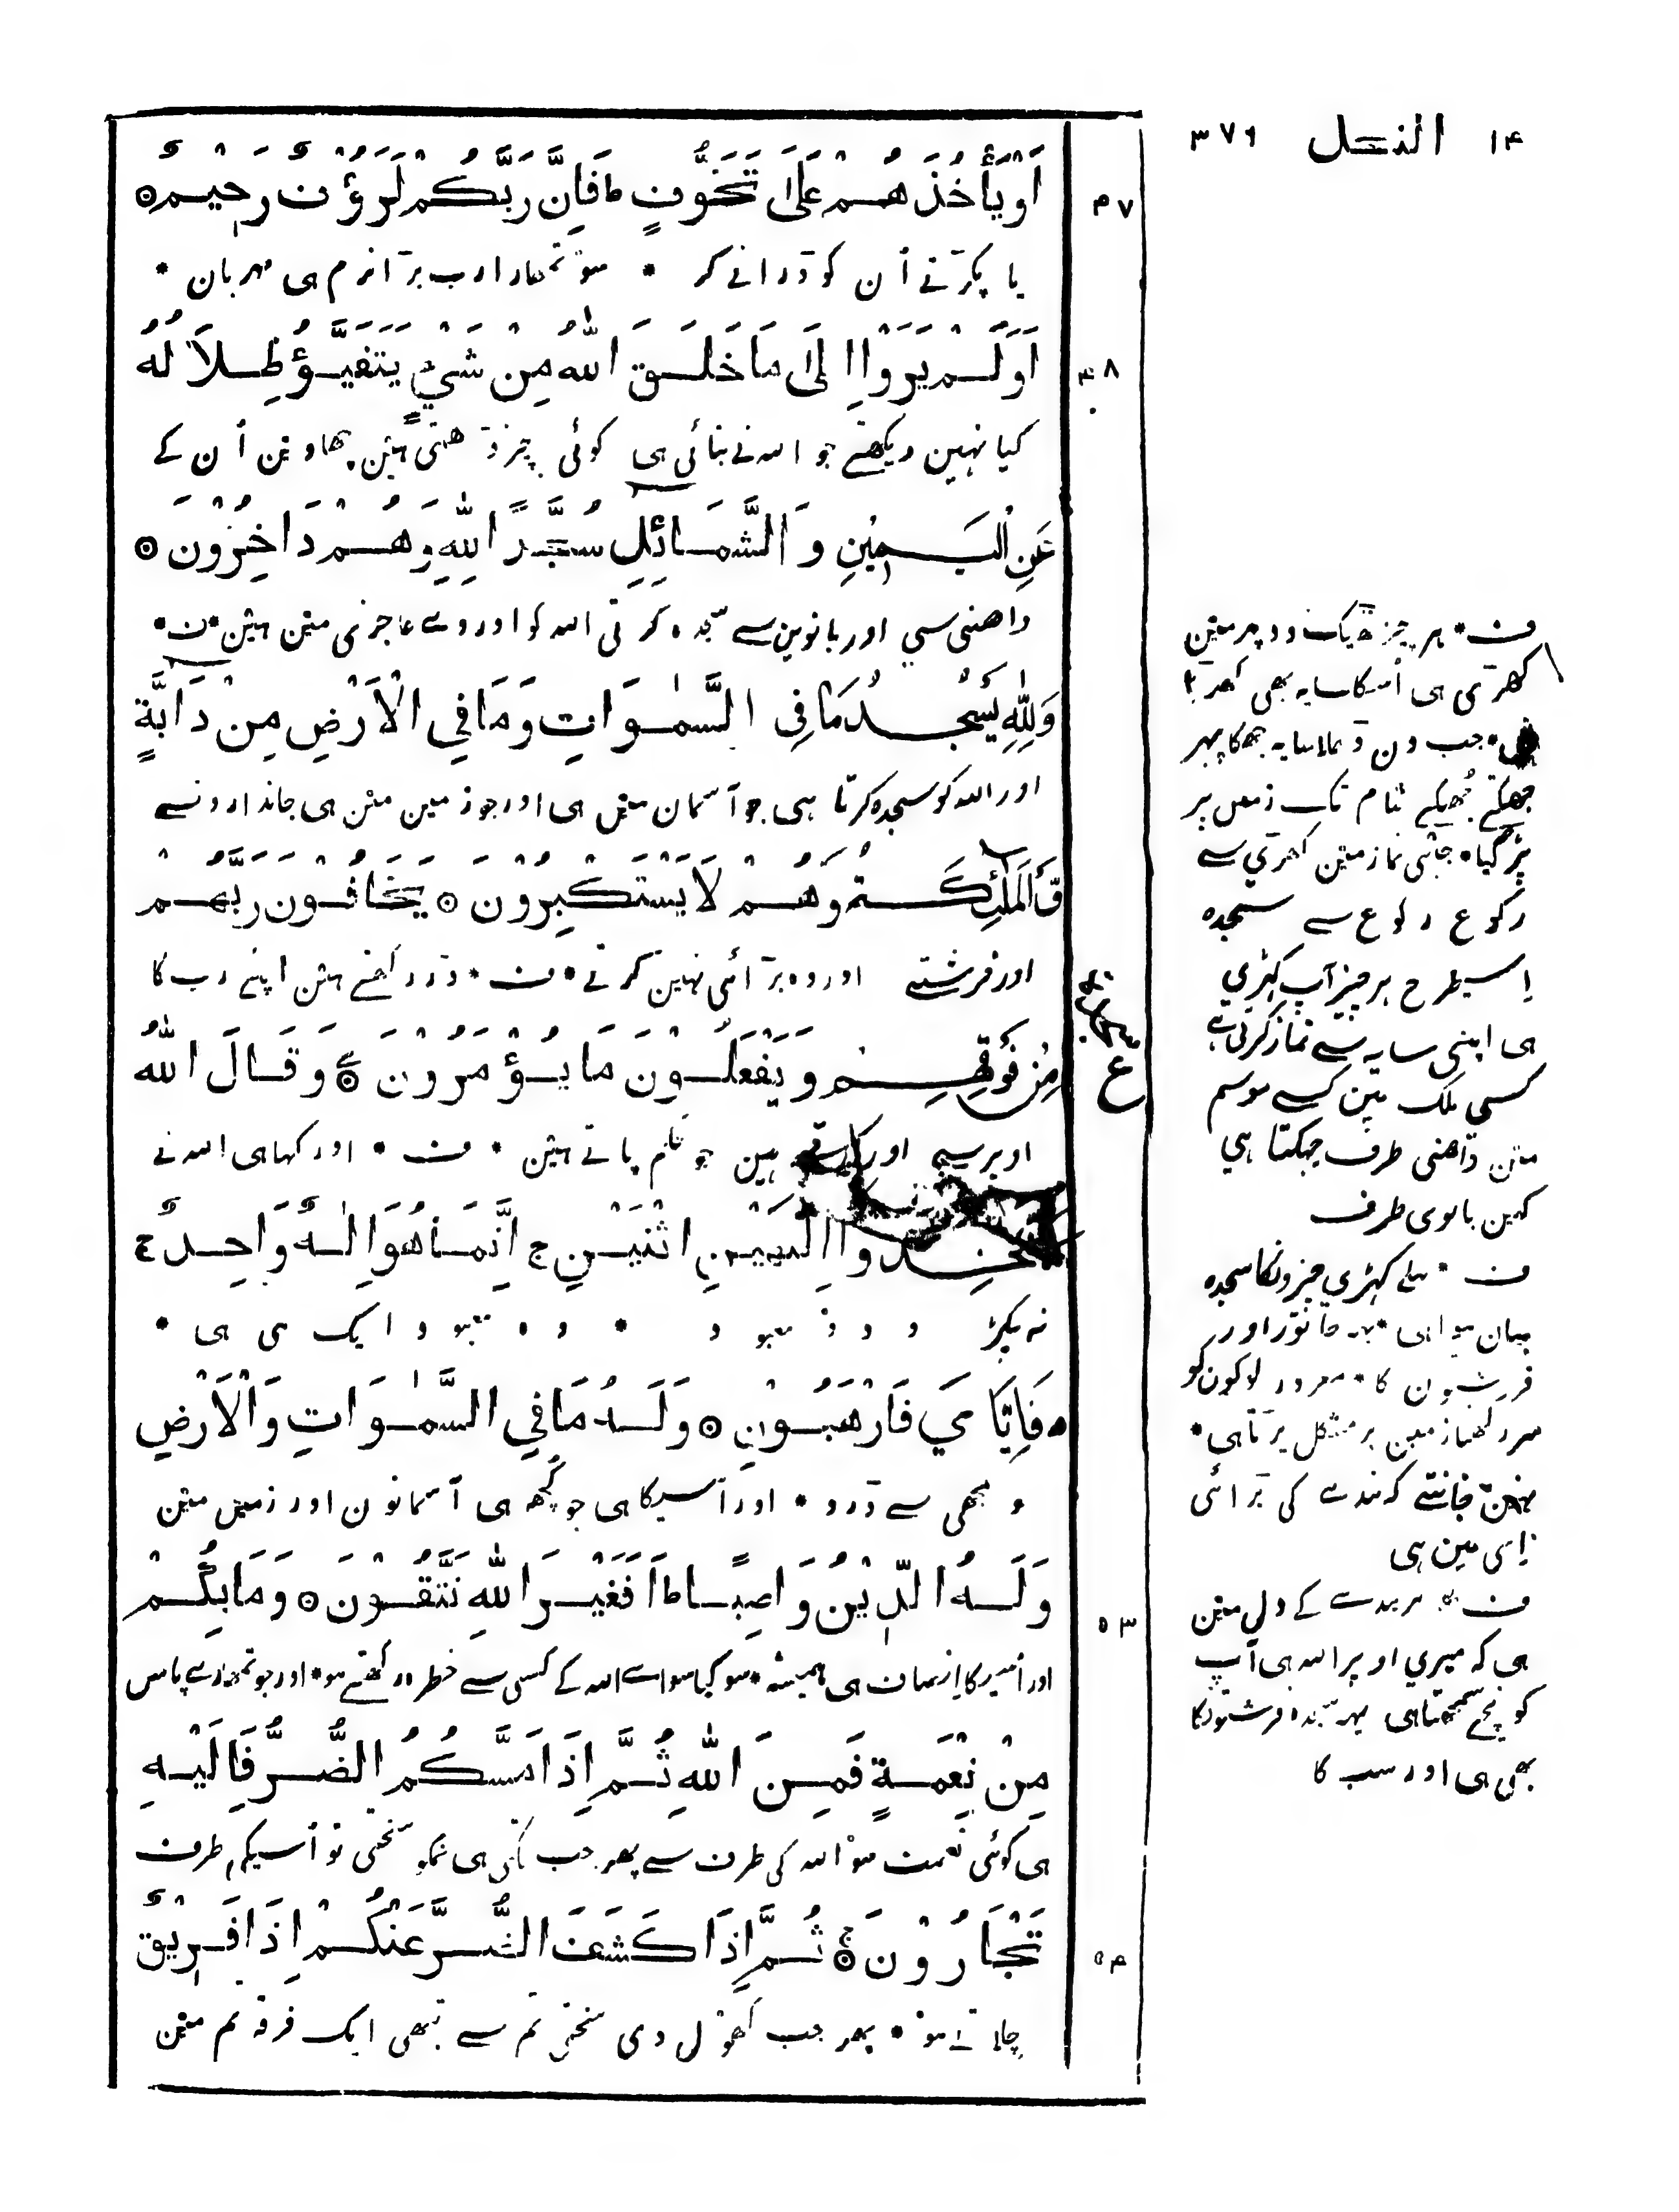 ۱۴ النحل ۳۷۶
اَوْ يَاْخُذَهُمْ عَلٰى تَخَوُّفٍ ط فَاِنَّ رَبَّكُمْ لَرَؤُفٌ رَحِيْمٌ ۝
۴۷
یا پکڑنے اُن کو ڈرانے کر * سو تمھارا رب بڑا نرم ہی مہربان *
اَوَلَمْ يَرَوْا اِلٰى مَا خَلَقَ اللّٰهُ مِنْ شَيْءٍ يَتَفَيَّؤُ ظِلَالُهُ
۴۸
کیا نہین دیکھتے جو اللہ نے بنائی ہی کوئی چیز ڈھلتی ہین چھاوین اُن کے
عَنِ الْيَمِيْنِ وَ الشَّمَائِلِ سُجَّدًا لِلّٰهِ وَهُمْ دَاخِرُوْنَ ۝
داھنی سی اور بانوین سے سجدہ کرتی اللہ کو اور وے عاجزی مین ہین *ف*
وَلِلّٰهِ يَسْجُدُ مَا فِى السَّمٰوَاتِ وَمَا فِي الْاَرْضِ مِنْ دَابَّةٍ
اور اللہ کو سجدہ کرتا ہی جو آسمان مین ہی اور جو زمین مین ہی جاندارو نسے
وَّالْمَلٰئِكَةُ وَهُمْ لَا يَسْتَكْبِرُوْنَ ۝ يَخَافُوْنَ رَبَّهُمْ
اور فرشتے اور وہ بڑائی نہین کرتے *ف* ڈر رکھتے ہین اپنے رب کا
مِنْ فَوْقِهِمْ وَيَفْعَلُوْنَ مَا يُؤْمَرُوْنَ ۝ وَقَالَ اللّٰهُ
ع
اوپر سے اور کرتے ہین جو حکم پاتے ہین * ف * اور کہا ہی اللہ نے
اِلٰهَيْنِ اثْنَيْنِ ج اِنَّمَا هُوَ اِلٰهٌ وَاحِدٌ ج
نہ پکڑو دو معبود * وہ معبود ایک ہی ہی *
فَاِيَّايَ فَارْهَبُوْنِ ۝ وَلَهُ مَا فِي السَّمٰوَاتِ وَالْاَرْضِ
مجھی سے ڈرو * اور اُسیکا ہی جو کچھ ہی آسمانون اور زمین مین
وَلَهُ الدِّيْنُ وَاصِبًا ط اَفَغَيْرَ اللّٰهِ تَتَّقُوْنَ ۝ وَمَا بِكُمْ
۵۳
اور اُسیکا انصاف ہی ہمیشہ * سو کیا سواے اللہ کے کسی سے خطرہ رکھتے ہو * اور جو تمھارے پاس
مِنْ نِعْمَةٍ فَمِنَ اللّٰهِ ثُمَّ اِذَا مَسَّكُمُ الضُّرُّ فَاِلَيْهِ
ہی کوئی نعمت سو اللہ کی طرف سے پھر جب لگتی ہی تمکو سختی تو اُسیکی طرف
تَجْاَرُوْنَ ۝ ثُمَّ اِذَا كَشَفَ الضُّرَّ عَنْكُمْ اِذَا فَرِيْقٌ
۵۴
چلاتے ہو * پھر جب کھول دی سختی تم سے تبھی ایک فرقہ تم مین
ف * ہر چیز ٹھیک دوپہر مین
کھڑی ہی اُسکا سایہ بھی کھڑا
ہی * جب دن ڈھلا سایہ جھکا پھر
جھکتے جھکتے شام تک زمین پر
پڑ گیا * جیسی نماز مین کھڑے سے
رکوع رکوع سے سجدہ
اِسیطرح ہر چیز آپ کھڑی
ہی اپنی سایہ سے نماز کرتی ہے
کسی ملک مین کسے موسم
مین داھنی طرف جھکتا ہی
کہین بانوی طرف
ف * پہلے کھڑی چیزونکا سجدہ
بیان ہوا ہی * یہ جانور اور
فرشتون کا * مغرور لوکون کو
سر رکھنا زمین پر مشکل پڑتا ہی *
نہین جانتے کہ بندے کی بڑائی
اِسی مین ہی
ف * ہر بندے کے دل مین
ہی کہ میری اوپر اللہ ہی آپ
کو نیچے سمجھتا ہی یہہ سجدہ فرشتونکا
بھی ہی اور سب کا